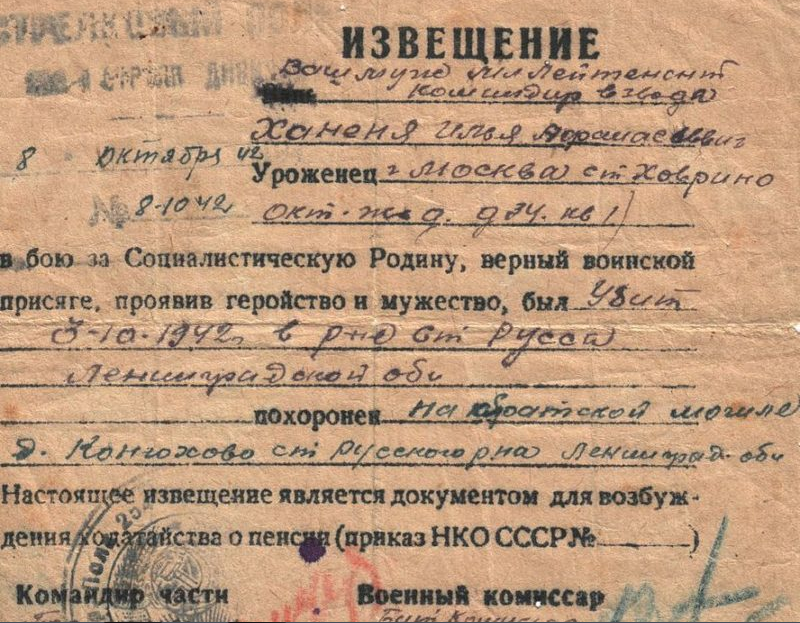 ИЗВЕЩЕНИЕ
Ваш муж мл лейтенант
командир взвода
Ханеня Илья Афанасьевич
8 октября 42
Уроженец г Москва ст Ховрино
№ 8-10 42
окт. ж д. д 34. кв 1)
в бою за Социалистическую Родину, верный воинской
присяге, проявив геройство и мужество, был убит
3-10-1942г в р-не ст Русса
Ленинградской обл
похоронен на братской могиле
д. Старо русского р-на Ленинград. обл
Настоящее извещение является документом для возбуж-
дения ходатайства о пенсии (приказ НКО СССР № )
Командир части Военный комиссар